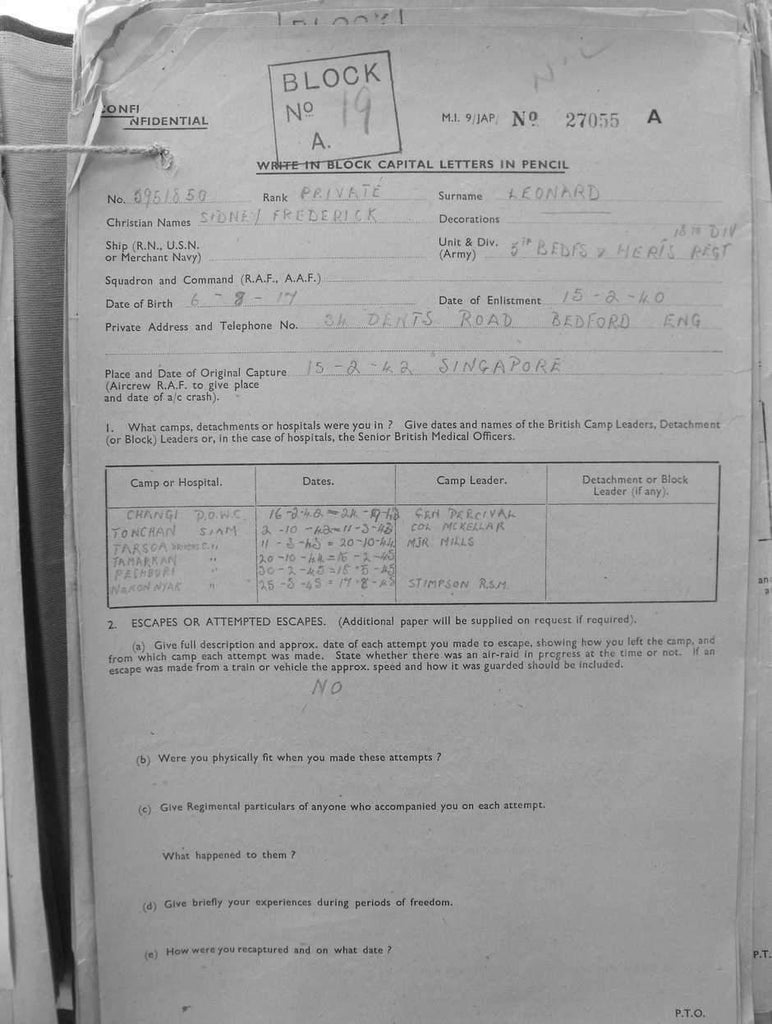 BLOCK
Nº 19
A.
CONFI
NFIDENTIAL
M.I. 9/JAP/ Nº 27055 A
WRITE IN BLOCK CAPITAL LETTERS IN PENCIL
No. 5951850 Rank PRIVATE Surname LEONARD
Christian Names SIDNEY FREDERICK Decorations
Ship (R.N., U.S.N. or Merchant Navy)
18TH DIV
Unit & Div. (Army) 5TH BEDFS & HERTS REGT
Squadron and Command (R.A.F., A.A.F.)
Date of Birth 6 - 8 - 17 Date of Enlistment 15 - 2 - 40
Private Address and Telephone No. 34 DENTS ROAD BEDFORD ENG
Place and Date of Original Capture 15 - 2 - 42 SINGAPORE
(Aircrew R.A.F. to give place
and date of a/c crash).
1. What camps, detachments or hospitals were you in ? Give dates and names of the British Camp Leaders, Detachment
(or Block) Leaders or, in the case of hospitals, the Senior British Medical Officers.
Camp or Hospital. Dates. Camp Leader. Detachment or Block Leader (if any).
CHANGI P.O.W.C. 16-2-42 = GEN PERCIVAL
TONCHAN SIAM 2 -10 -42 = 11-3-43 COL MCKELLAR
11 - 3 -43 = 20-10-44 MJR MILLS
TAMARKAN " 20-10-44 = 15-2-45
"
NAKON NYAK " STIMPSON R.S.M.
2. ESCAPES OR ATTEMPTED ESCAPES. (Additional paper will be supplied on request if required).
(a) Give full description and approx. date of each attempt you made to escape, showing how you left the camp, and
from which camp each attempt was made. State whether there was an air-raid in progress at the time or not. If an
escape was made from a train or vehicle the approx. speed and how it was guarded should be included.
NO
(b) Were you physically fit when you made these attempts ?
(c) Give Regimental particulars of anyone who accompanied you on each attempt.
What happened to them ?
(d) Give briefly your experiences during periods of freedom.
(e) How were you recaptured and on what date ?
P.T.O.
P.T.